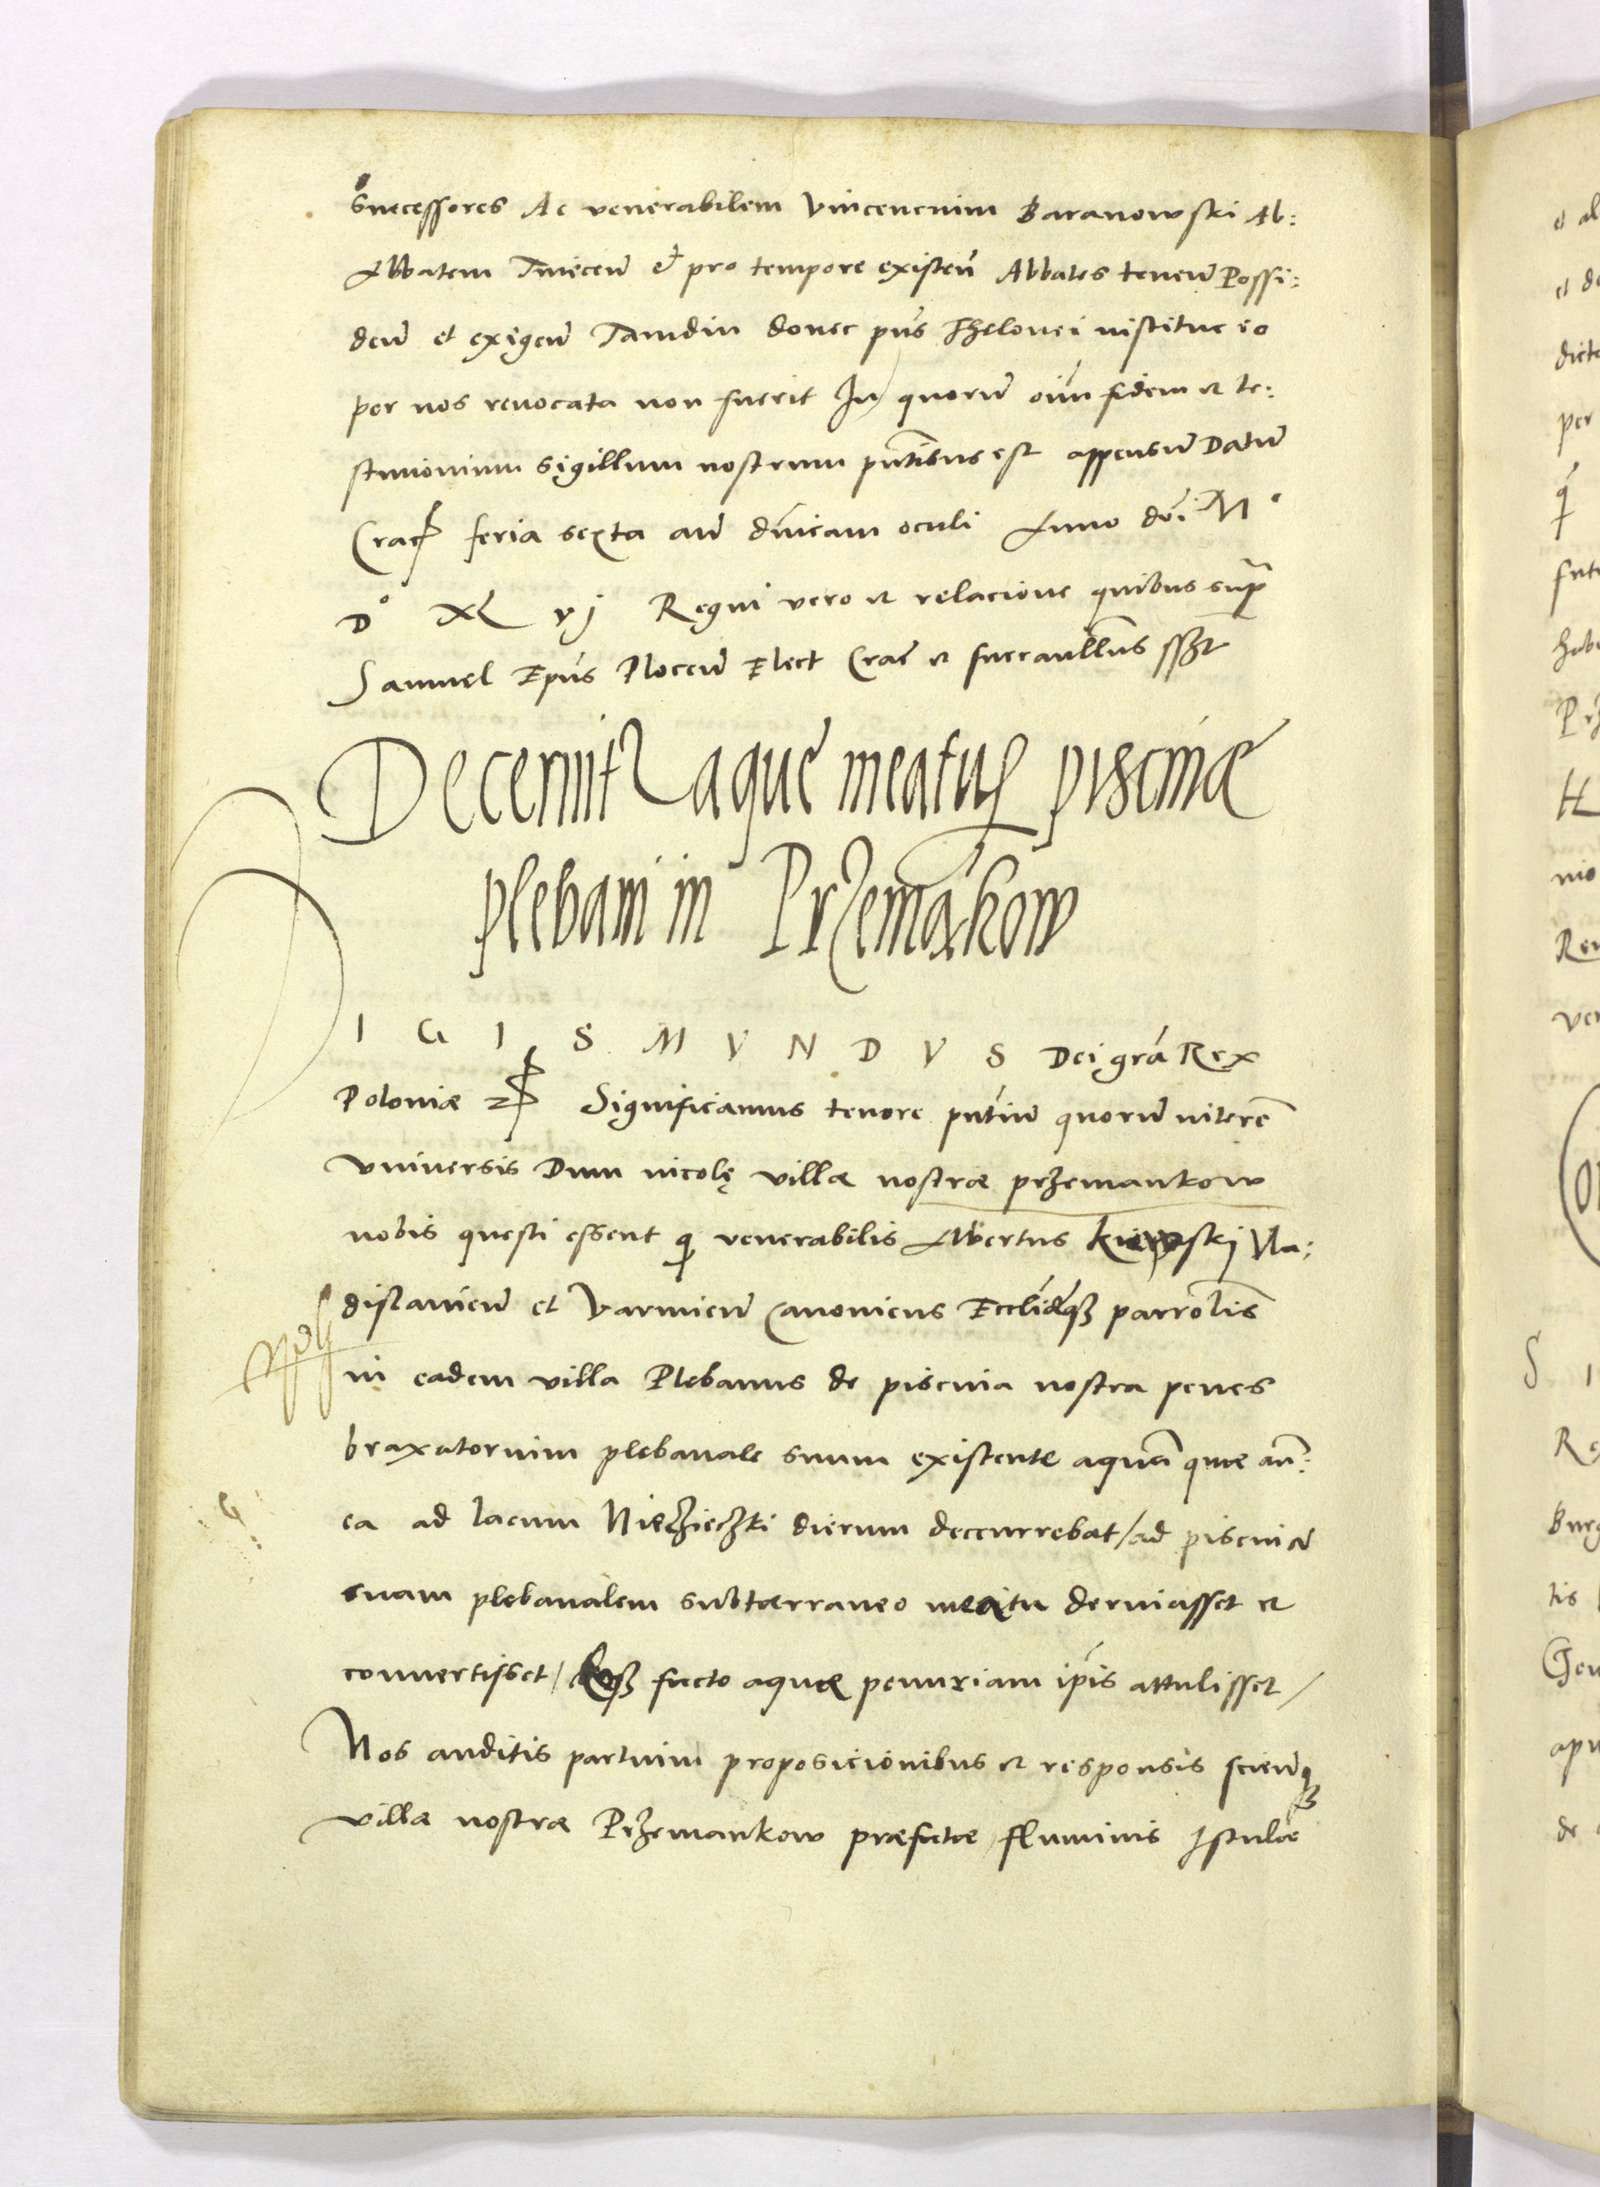 Successores Ac venerabilem Vincencium Baranowski Ab:
Abbatem Tinecen̄ et pro tempore existen̄ Abbates tenen̄ Possi:
den̄ et exigen̄ Tamdiu donec pn̄s Thelonei institucio
per nos revocata non fuerit In quorum oīm fidem et te:
stimonium sigillum nostrum pn̄tibus est appensum Datum
Crac feria sexta an̄ dn̄icam oculi Anno dn̄i M°
D° XL vj Regni vero et relacione quibus supra
Samuel Ep̄us Plocen̄ Elect Crac et sst
Decernitur aque meatus piscinæ
plebani in Przemākow
I G I S M V N D V S Dei gr̄a Rex
Poloniæ Significamus tenore pn̄tium quorum interē
Vniversis Dum incolę villæ nostræ przemankow
nobis questi essent q venerabilis Albertus Kiewskj Vla:
dislavien̄ et Varmien̄ Canonicus Eccliæq3 parrōlis
in eadem villa Plebanus de piscina nostra penes
braxatorium plebanale suum existente aquā quæ an̄:
ea ad lacum dierum deccurrebat / ad piscinā
suam plebanalem subtærraneo meatu deriuasset et
conuertisset / facto aquæ penuriam ip̄is attulisset /
Nos auditis partium proposicionibus et responsis scien̄q3
villæ nostræ Przemankow præfatæ fluminis Istulæ